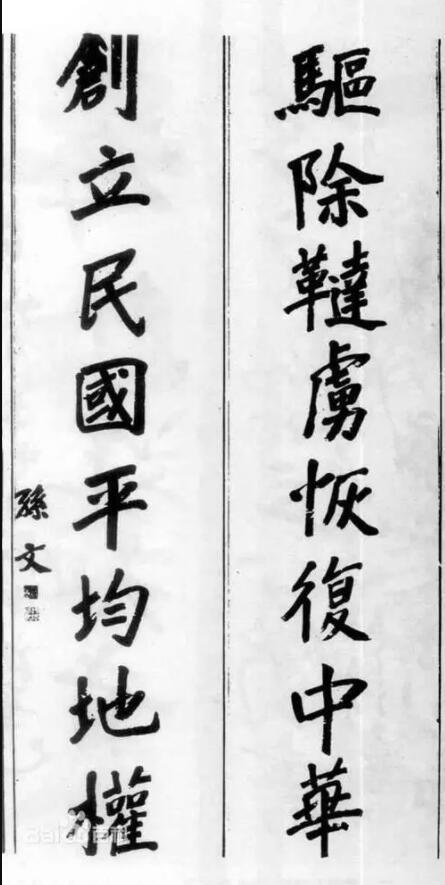 驅除韃虜恢復中華
創立民國平均地權
孫文
Baidu百科